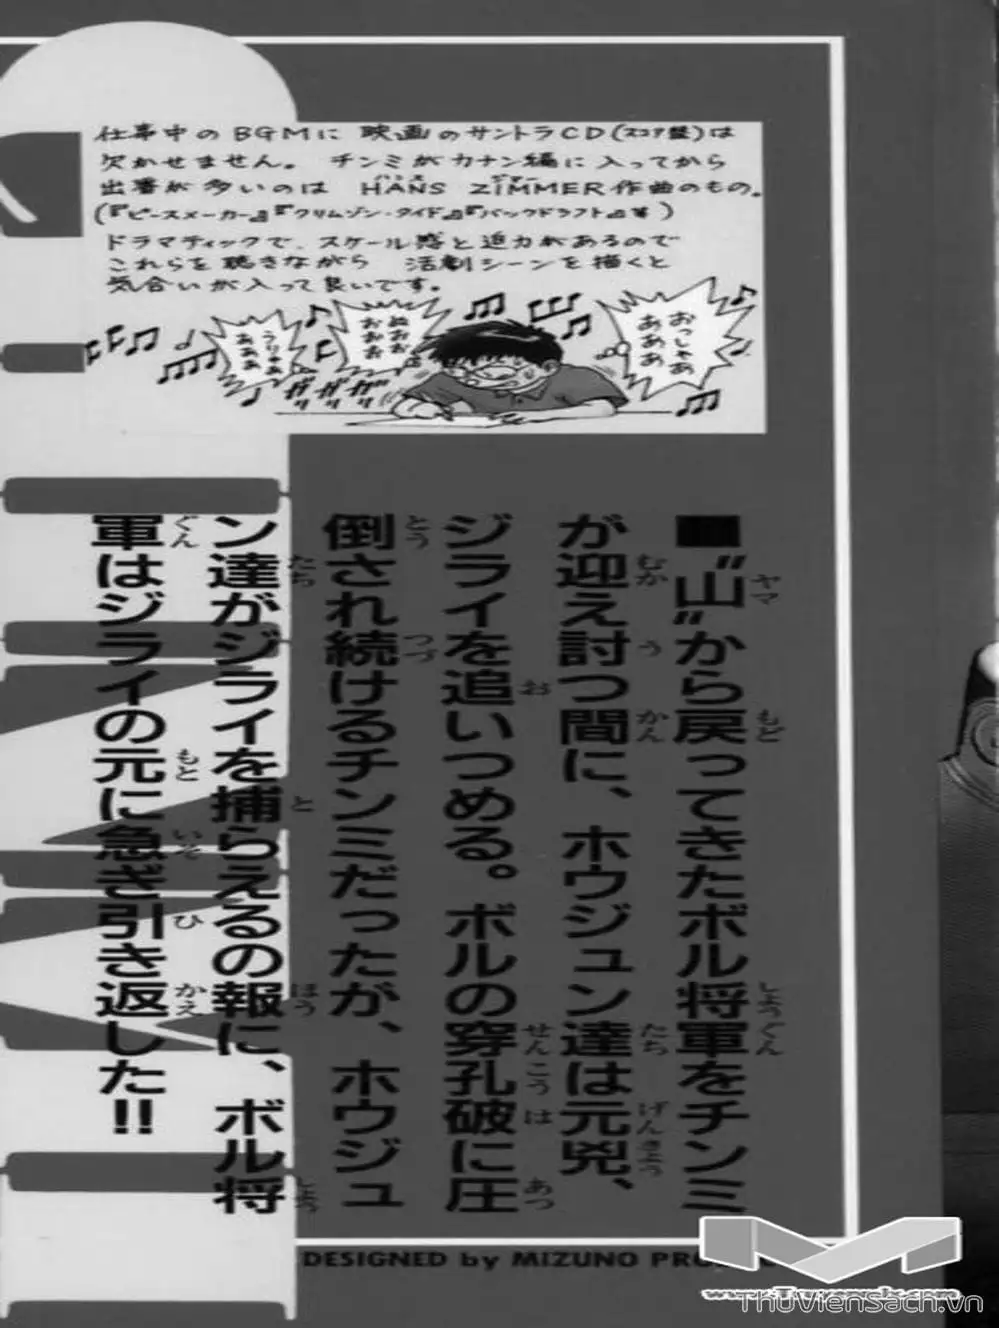 仕事中のBGMに 映画のサントラCD(スコア盤)は
欠かせません。 チンミがカナン編に入ってから
出番が多いのは HANS ZIMMER作曲のもの。
ハンス ジマー
(『ピースメーカー』『クリムゾン・タイド』『バックドラフト』等)
ドラマティックで、スケール感と迫力があるので
これらを聴きながら 活劇シーンを描くと
気合いが入って良いです。
おっしゃあ
あああ
ぬおお
おおお
うりゃあ
あああ
ガリ ガリ ガリ
■“山”から戻ってきたボル将軍をチンミ
が迎え討つ間に、ホウジュン達は元兇、
ジライを追いつめる。ボルの穿孔破に圧
倒され続けるチンミだったが、ホウジュ
ン達がジライを捕らえるの報に、ボル将
軍はジライの元に急ぎ引き返した!!
DESIGNED by MIZUNO PRO
ThuVienSach.vn